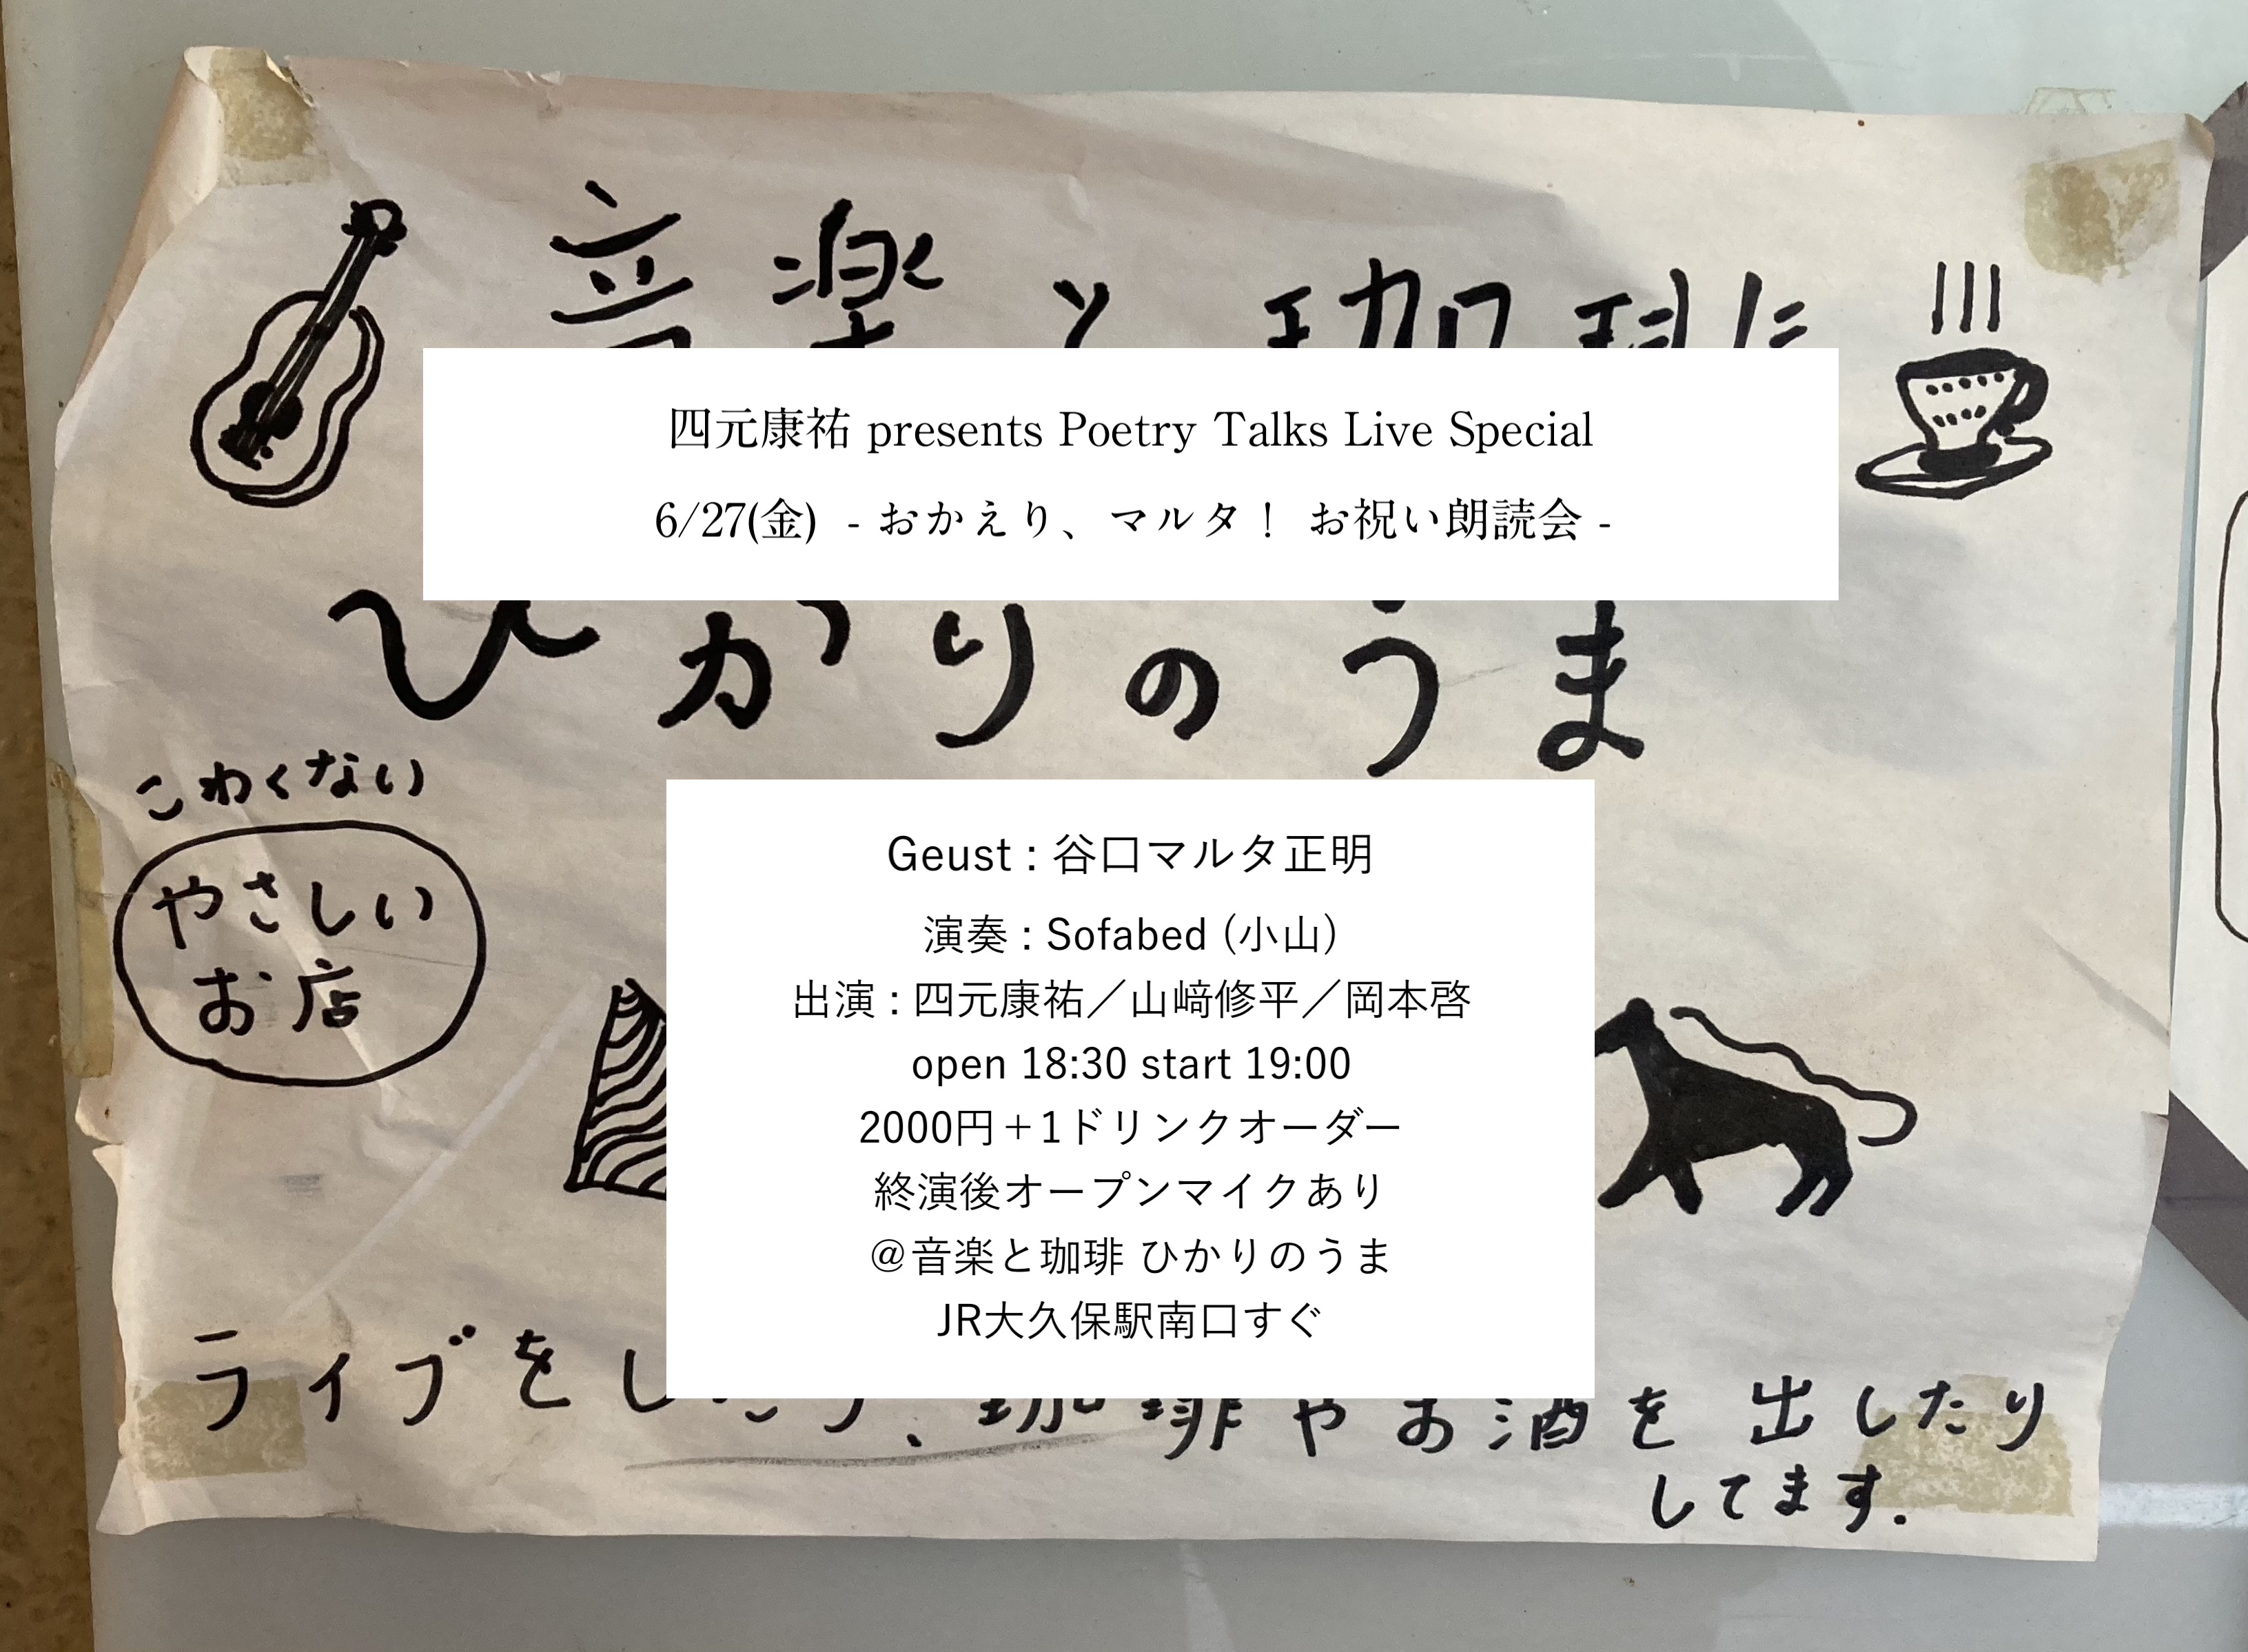 音楽と珈琲
四元康祐 presents Poetry Talks Live Special
6/27(金) - おかえり、マルタ！ お祝い朗読会 -
ひかりのうま
こわくない
やさしい
お店
Geust : 谷口マルタ正明
演奏 : Sofabed (小山)
出演 : 四元康祐／山﨑修平／岡本啓
open 18:30 start 19:00
2000円＋1ドリンクオーダー
終演後オープンマイクあり
@音楽と珈琲 ひかりのうま
JR大久保駅南口すぐ
ライブをしたり、珈琲やお酒を出したり
してます.